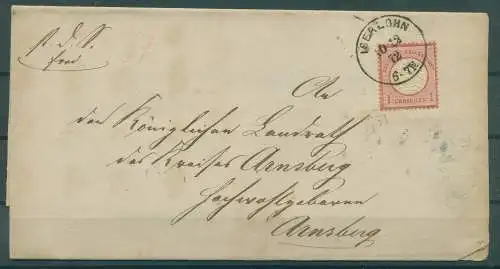 frei
ISERLOHN
10 12
72
6-7N
1 GROSCHEN 1
An
den Königlichen Landrath
des Kreises Arnsberg
Hochwohlgeboren
Arnsberg